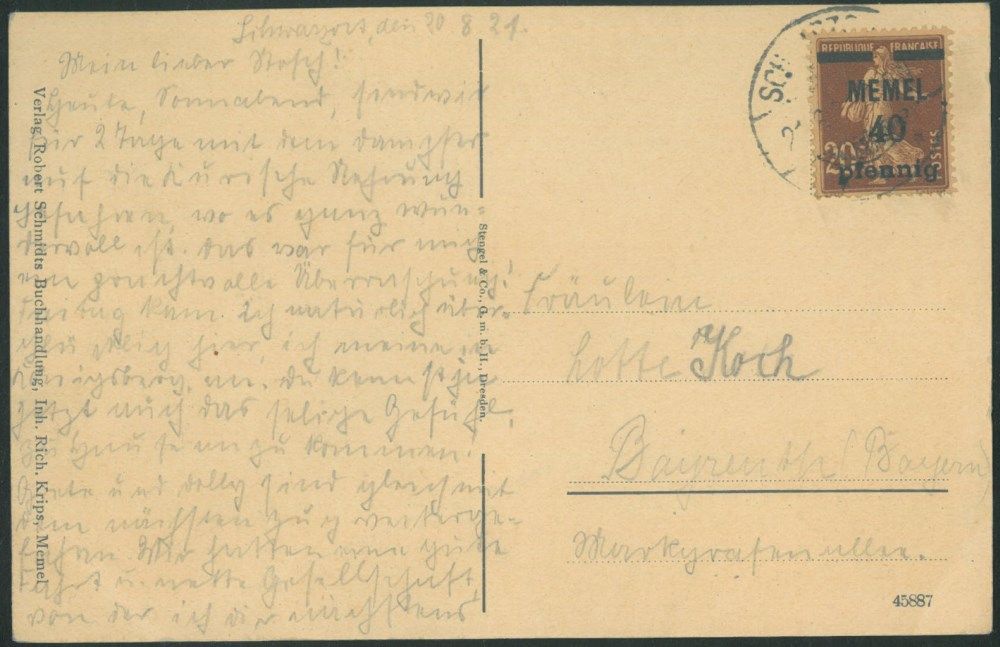 Schwarzort, den 20 8 21.
Mein lieber Stosch!
Heute, Sonnabend, sind wir
für 2 Tage mit dem Dampfer
auf die Kurische Nehrung
gefahren, wo es ganz wun-
dervoll ist. Das war für mich
eine prachtvolle Überraschung!
kam. Ich natürlich über-
selig hier, ich meine in
Königsberg, an. Du kennst ja
jetzt auch das selige Gefühl,
zu Hause anzukommen.
und Dolly sind gleich mit
dem nächsten Zug weiterge-
fahren. Wir hatten eine gute
Fahrt u. nette Gesellschaft,
von der ich dir nächstens
Verlag Robert Schmidts Buchhandlung, Inh. Rich. Krips, Memel
Stengel & Co., G. m. b. H., Dresden.
SCH
REPUBLIQUE FRANÇAISE
MEMEL
40
pfennig
20
POSTES
Fräulein
Lotte Koch
Bayreuth (Bayern)
Markgrafenallee.
45887